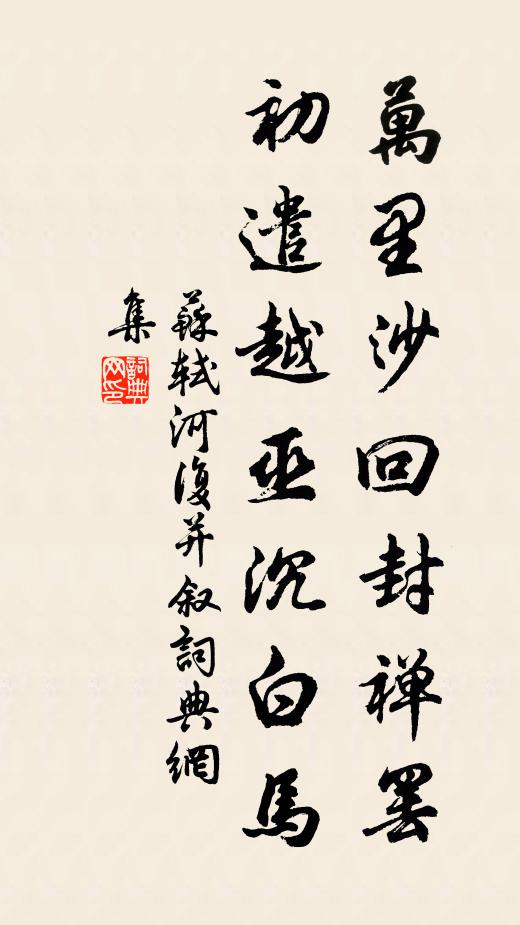 萬里沙回封禅罢
初遣越巫沉白馬
蘇轼河復并叙詞典網
集
詞典
网印